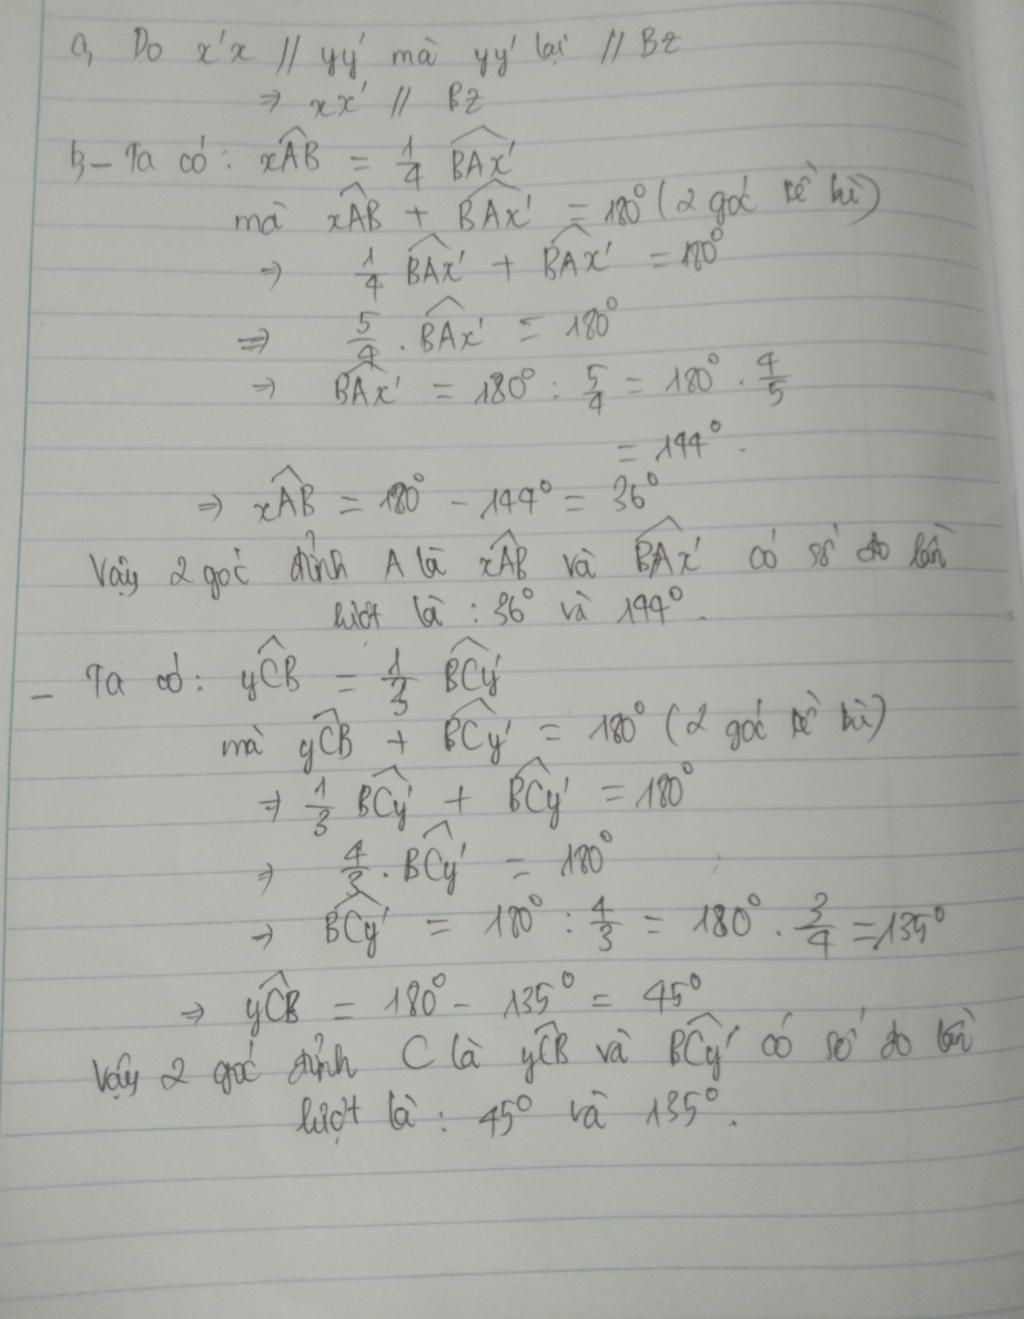 a, Do x'x // yy' mà yy' lại // Bz
⇒ xx' // Bz
b, - Ta có: xÂB = 1/4 BAx'
mà xÂB + BAx' = 180° (2 góc kề bù)
⇒ 1/4 BAx' + BAx' = 180°
⇒ 5/4 . BAx' = 180°
⇒ BAx' = 180° : 5/4 = 180° . 4/5
= 144°.
⇒ xÂB = 180° - 144° = 36°
Vậy 2 góc đỉnh A là xÂB và BAx' có số đo lần
lượt là : 36° và 144°.
- Ta có: yĈB = 1/3 BCy'
mà yĈB + BCy' = 180° (2 góc kề bù)
⇒ 1/3 BCy' + BCy' = 180°
⇒ 4/3 . BCy' = 180°
⇒ BCy' = 180° : 4/3 = 180° . 3/4 = 135°
⇒ yĈB = 180° - 135° = 45°
Vậy 2 góc đỉnh C là yĈB và BCy' có số đo lần
lượt là : 45° và 135°.